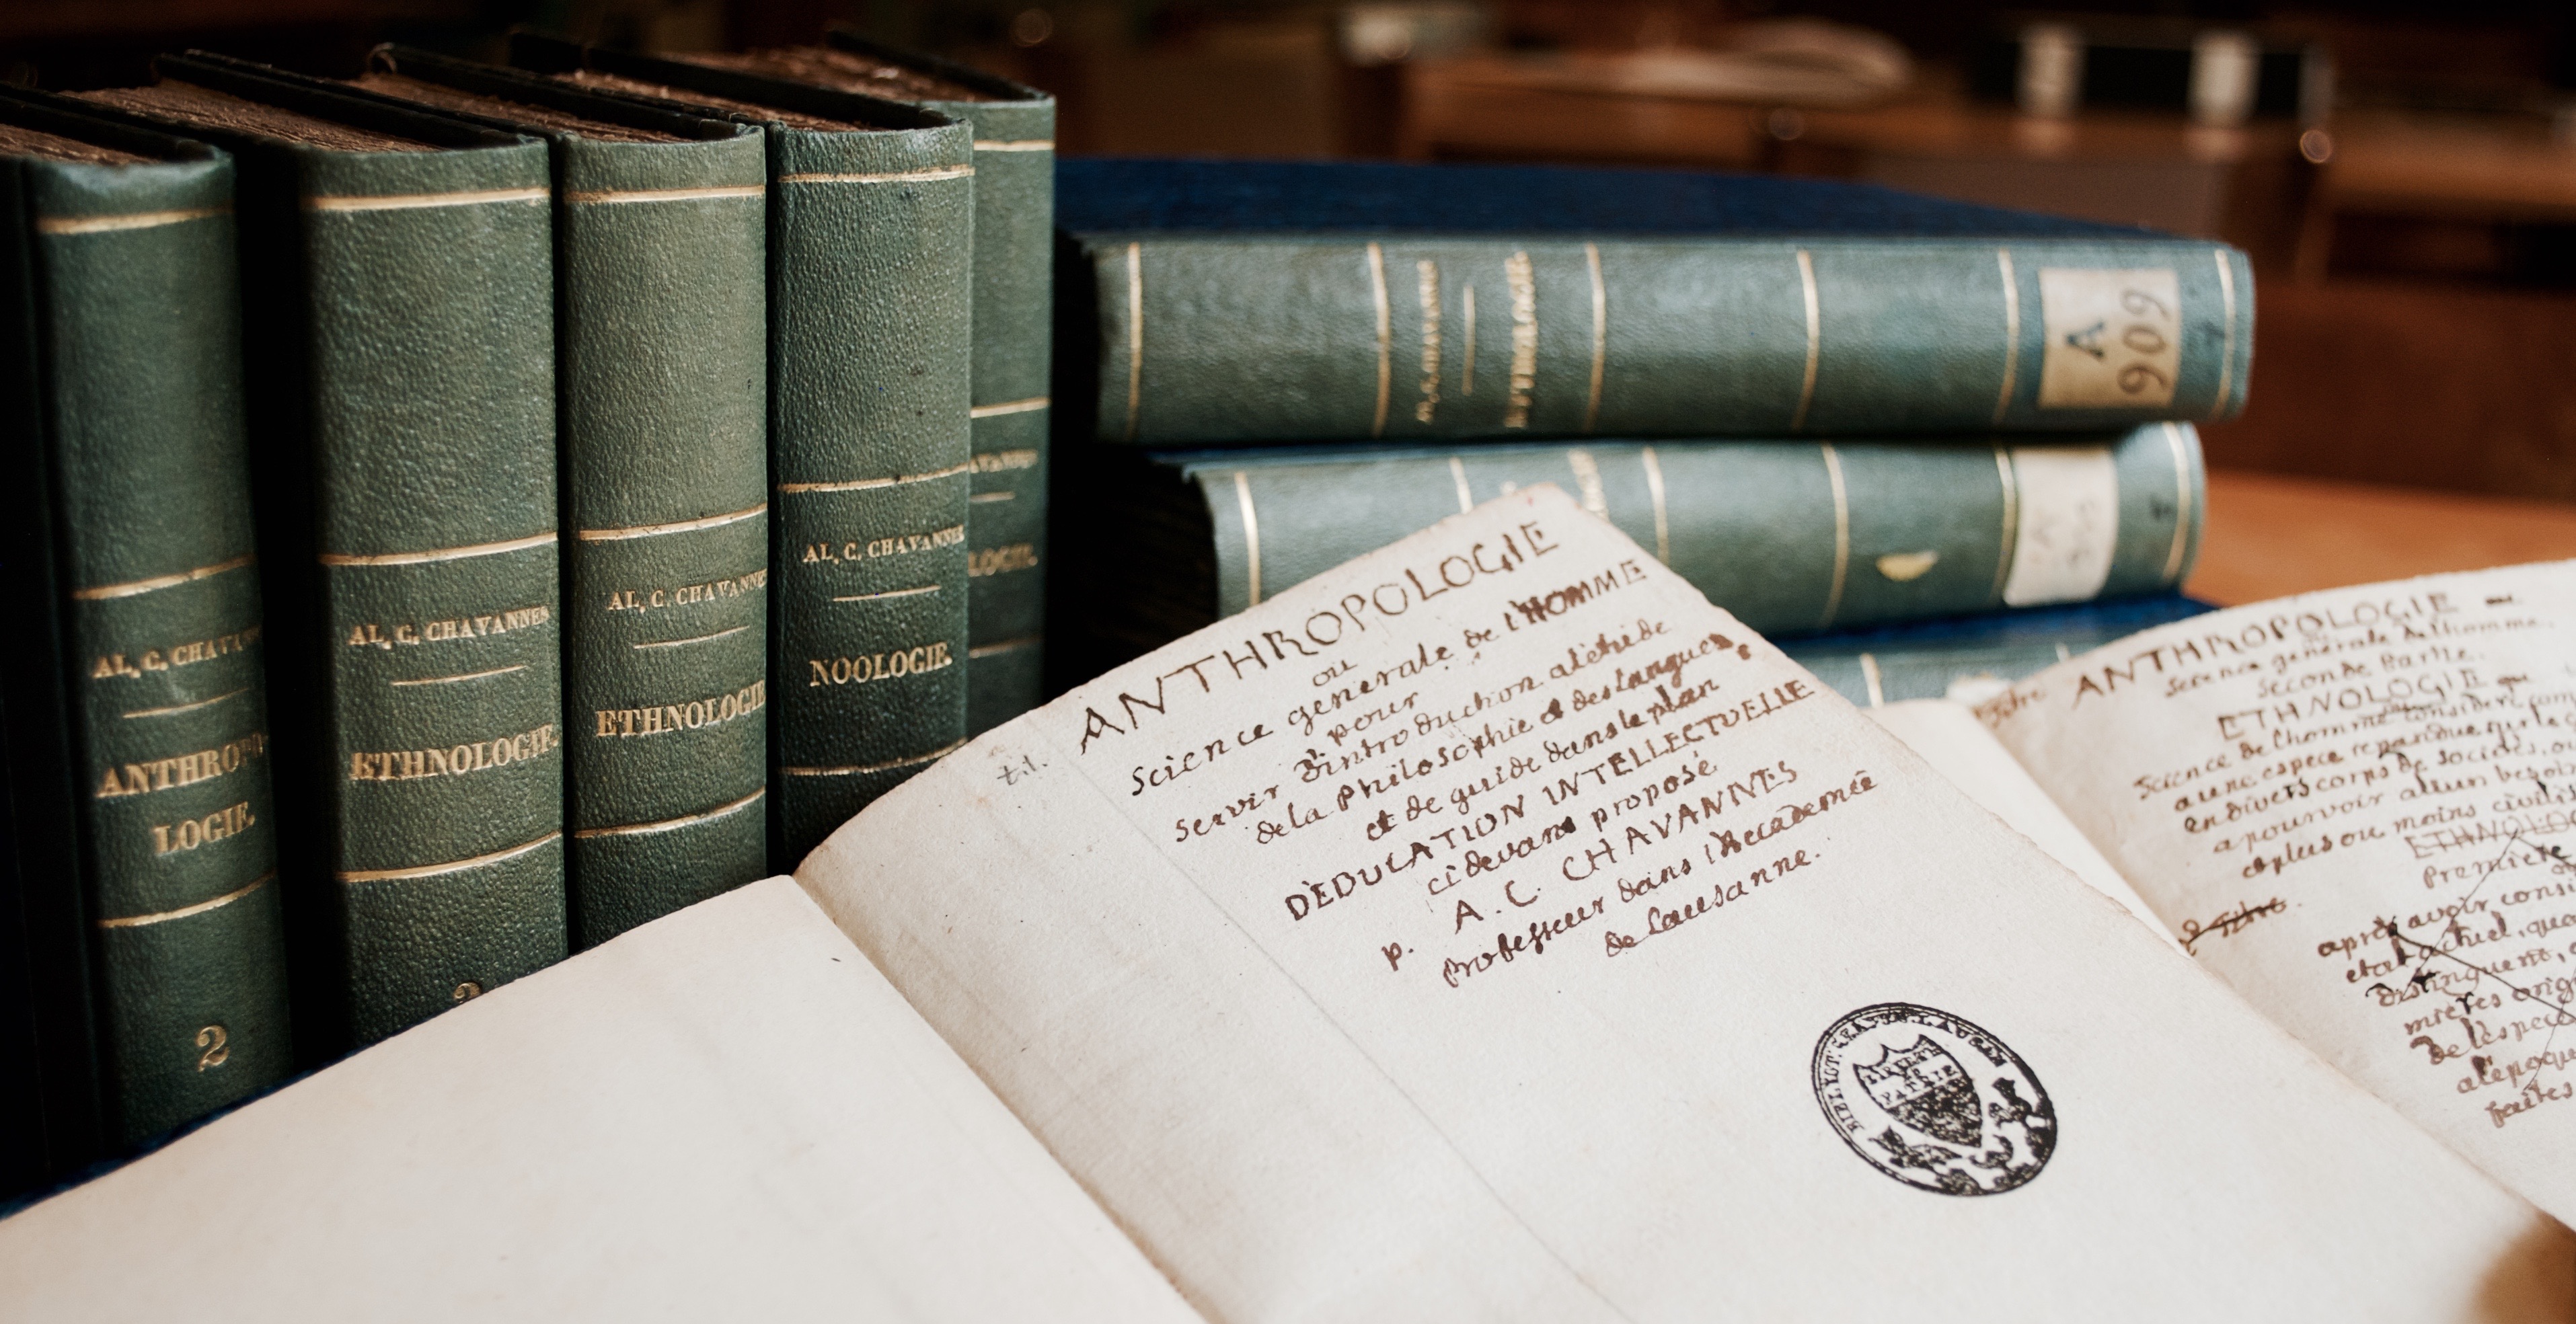 AL. C. CHAVA
ANTHROPO
LOGIE.
2
AL. C. CHAVANNES
ETHNOLOGIE.
AL. C. CHAVANNE
ETHNOLOGIE
AL. C. CHAVANNES
NOOLOGIE.
AVANNES
LOGIE.
A
909
ANTHROPOLOGIE
ou
Science generale de l'HOMME
pour
servir d'introduction a l'etude
de la Philosophie et des langues,
et de guide dans le plan
D'EDUCATION INTELLECTUELLE
ci devant proposé
p. A. C. CHAVANNES
professeur dans l'Academie
de Lausanne.
ANTHROPOLOGIE
Science générale de l'homme.
Seconde Partie.
ETHNOLOGIE ou
Science de l'homme considéré com
a une espece repandue sur le
en divers corps de sociétés, ou
a pourvoir a leurs besoin
et plus ou moins civilis
ETHNOLOG
Premiere
après avoir consi
etat actuel, que
distinguent,
mieres orig
de l'espece
a l'epoque
faites